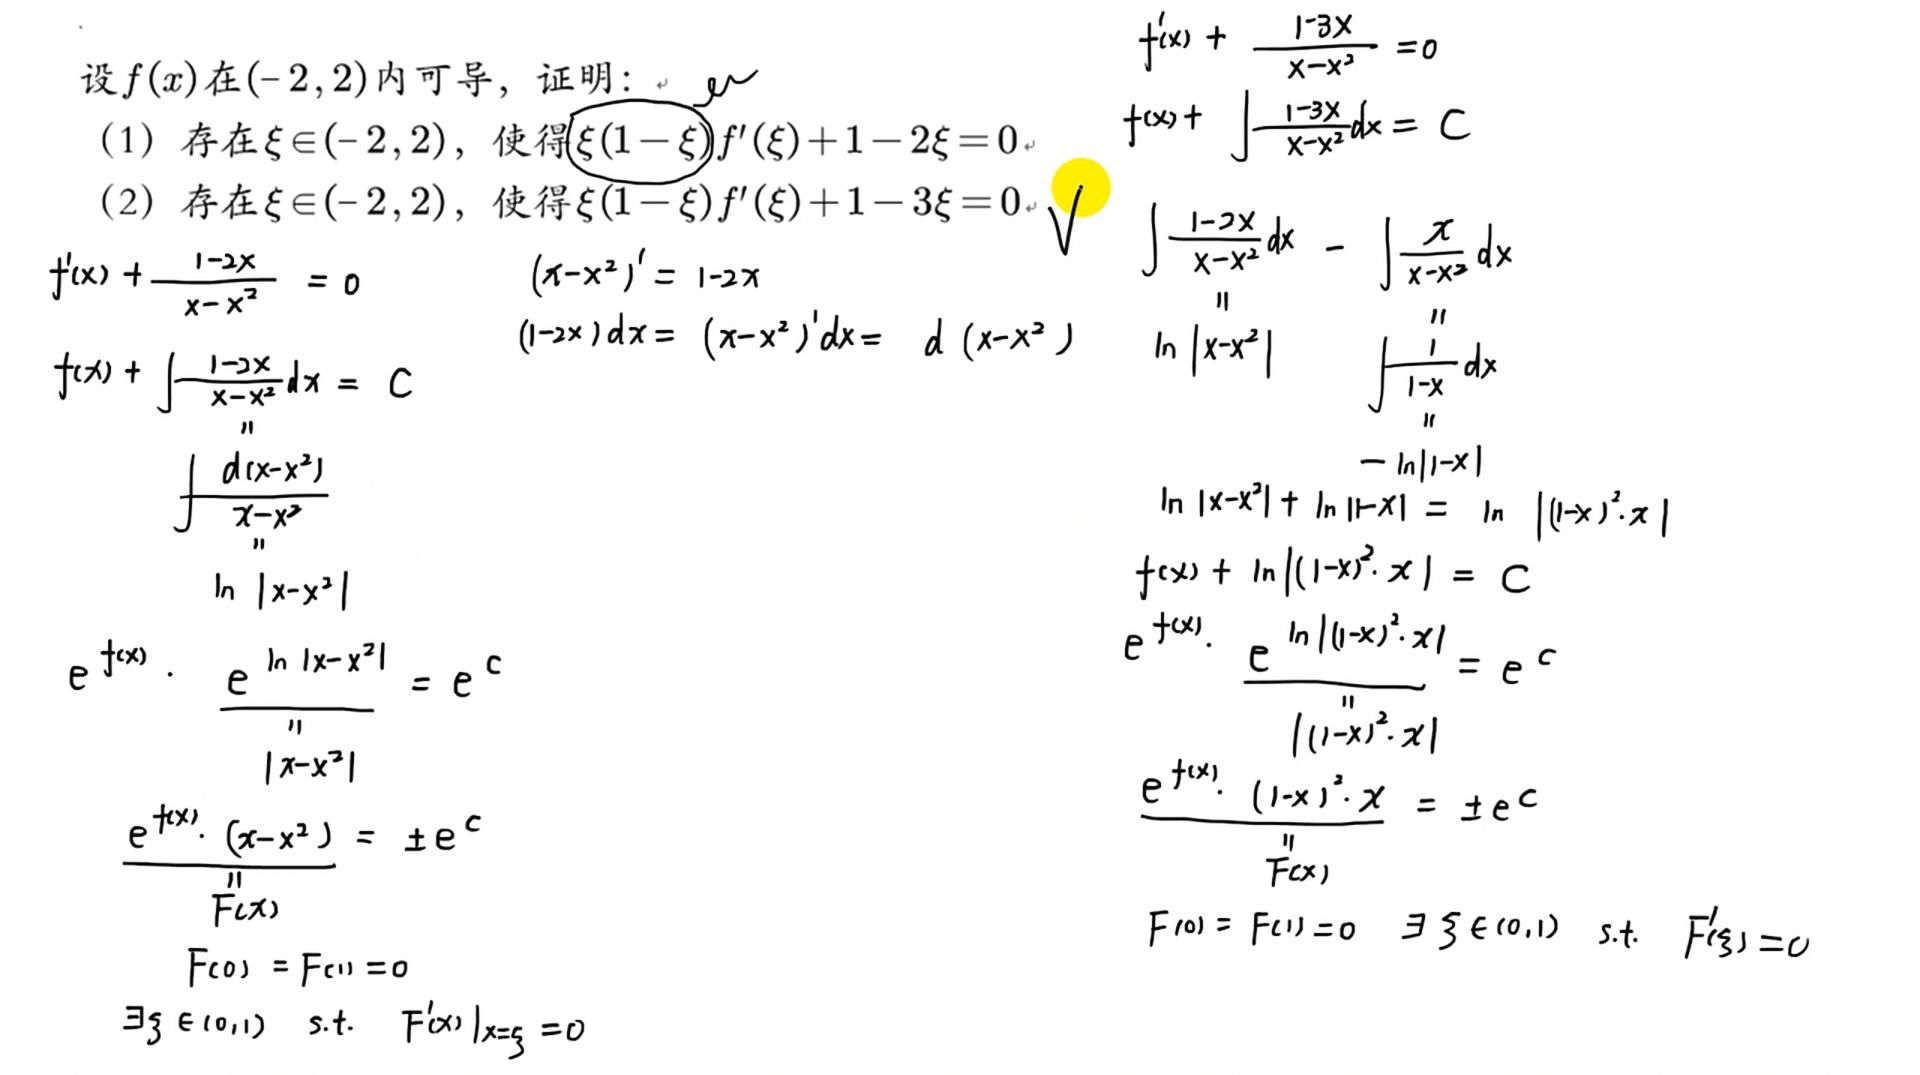 设f(x)在(-2,2)内可导，证明：
（1）存在ξ∈(-2,2)，使得ξ(1-ξ)f'(ξ)+1-2ξ=0
（2）存在ξ∈(-2,2)，使得ξ(1-ξ)f'(ξ)+1-3ξ=0 √
f'(x) + (1-2x)/(x-x²) = 0
f(x) + ∫ (1-2x)/(x-x²) dx = C
=
∫ d(x-x²)/(x-x²)
=
ln |x-x²|
e^f(x) · e^(ln |x-x²|) = e^c
=
|x-x²|
e^f(x) · (x-x²) = ±e^c
=
F(x)
F(0) = F(1) = 0
∃ξ∈(0,1) s.t. F'(x)|x=ξ = 0
(x-x²)' = 1-2x
(1-2x)dx = (x-x²)'dx = d(x-x²)
f'(x) + (1-3x)/(x-x²) = 0
f(x) + ∫ (1-3x)/(x-x²) dx = C
∫ (1-2x)/(x-x²) dx - ∫ x/(x-x²) dx
= =
ln |x-x²| ∫ 1/(1-x) dx
=
- ln|1-x|
ln |x-x²| + ln |1-x| = ln |(1-x)²·x|
f(x) + ln|(1-x)²·x| = C
e^f(x) · e^(ln|(1-x)²·x|) = e^c
=
|(1-x)²·x|
e^f(x) · (1-x)²·x = ±e^c
=
F(x)
F(0) = F(1) = 0 ∃ξ∈(0,1) s.t. F'(ξ) = 0